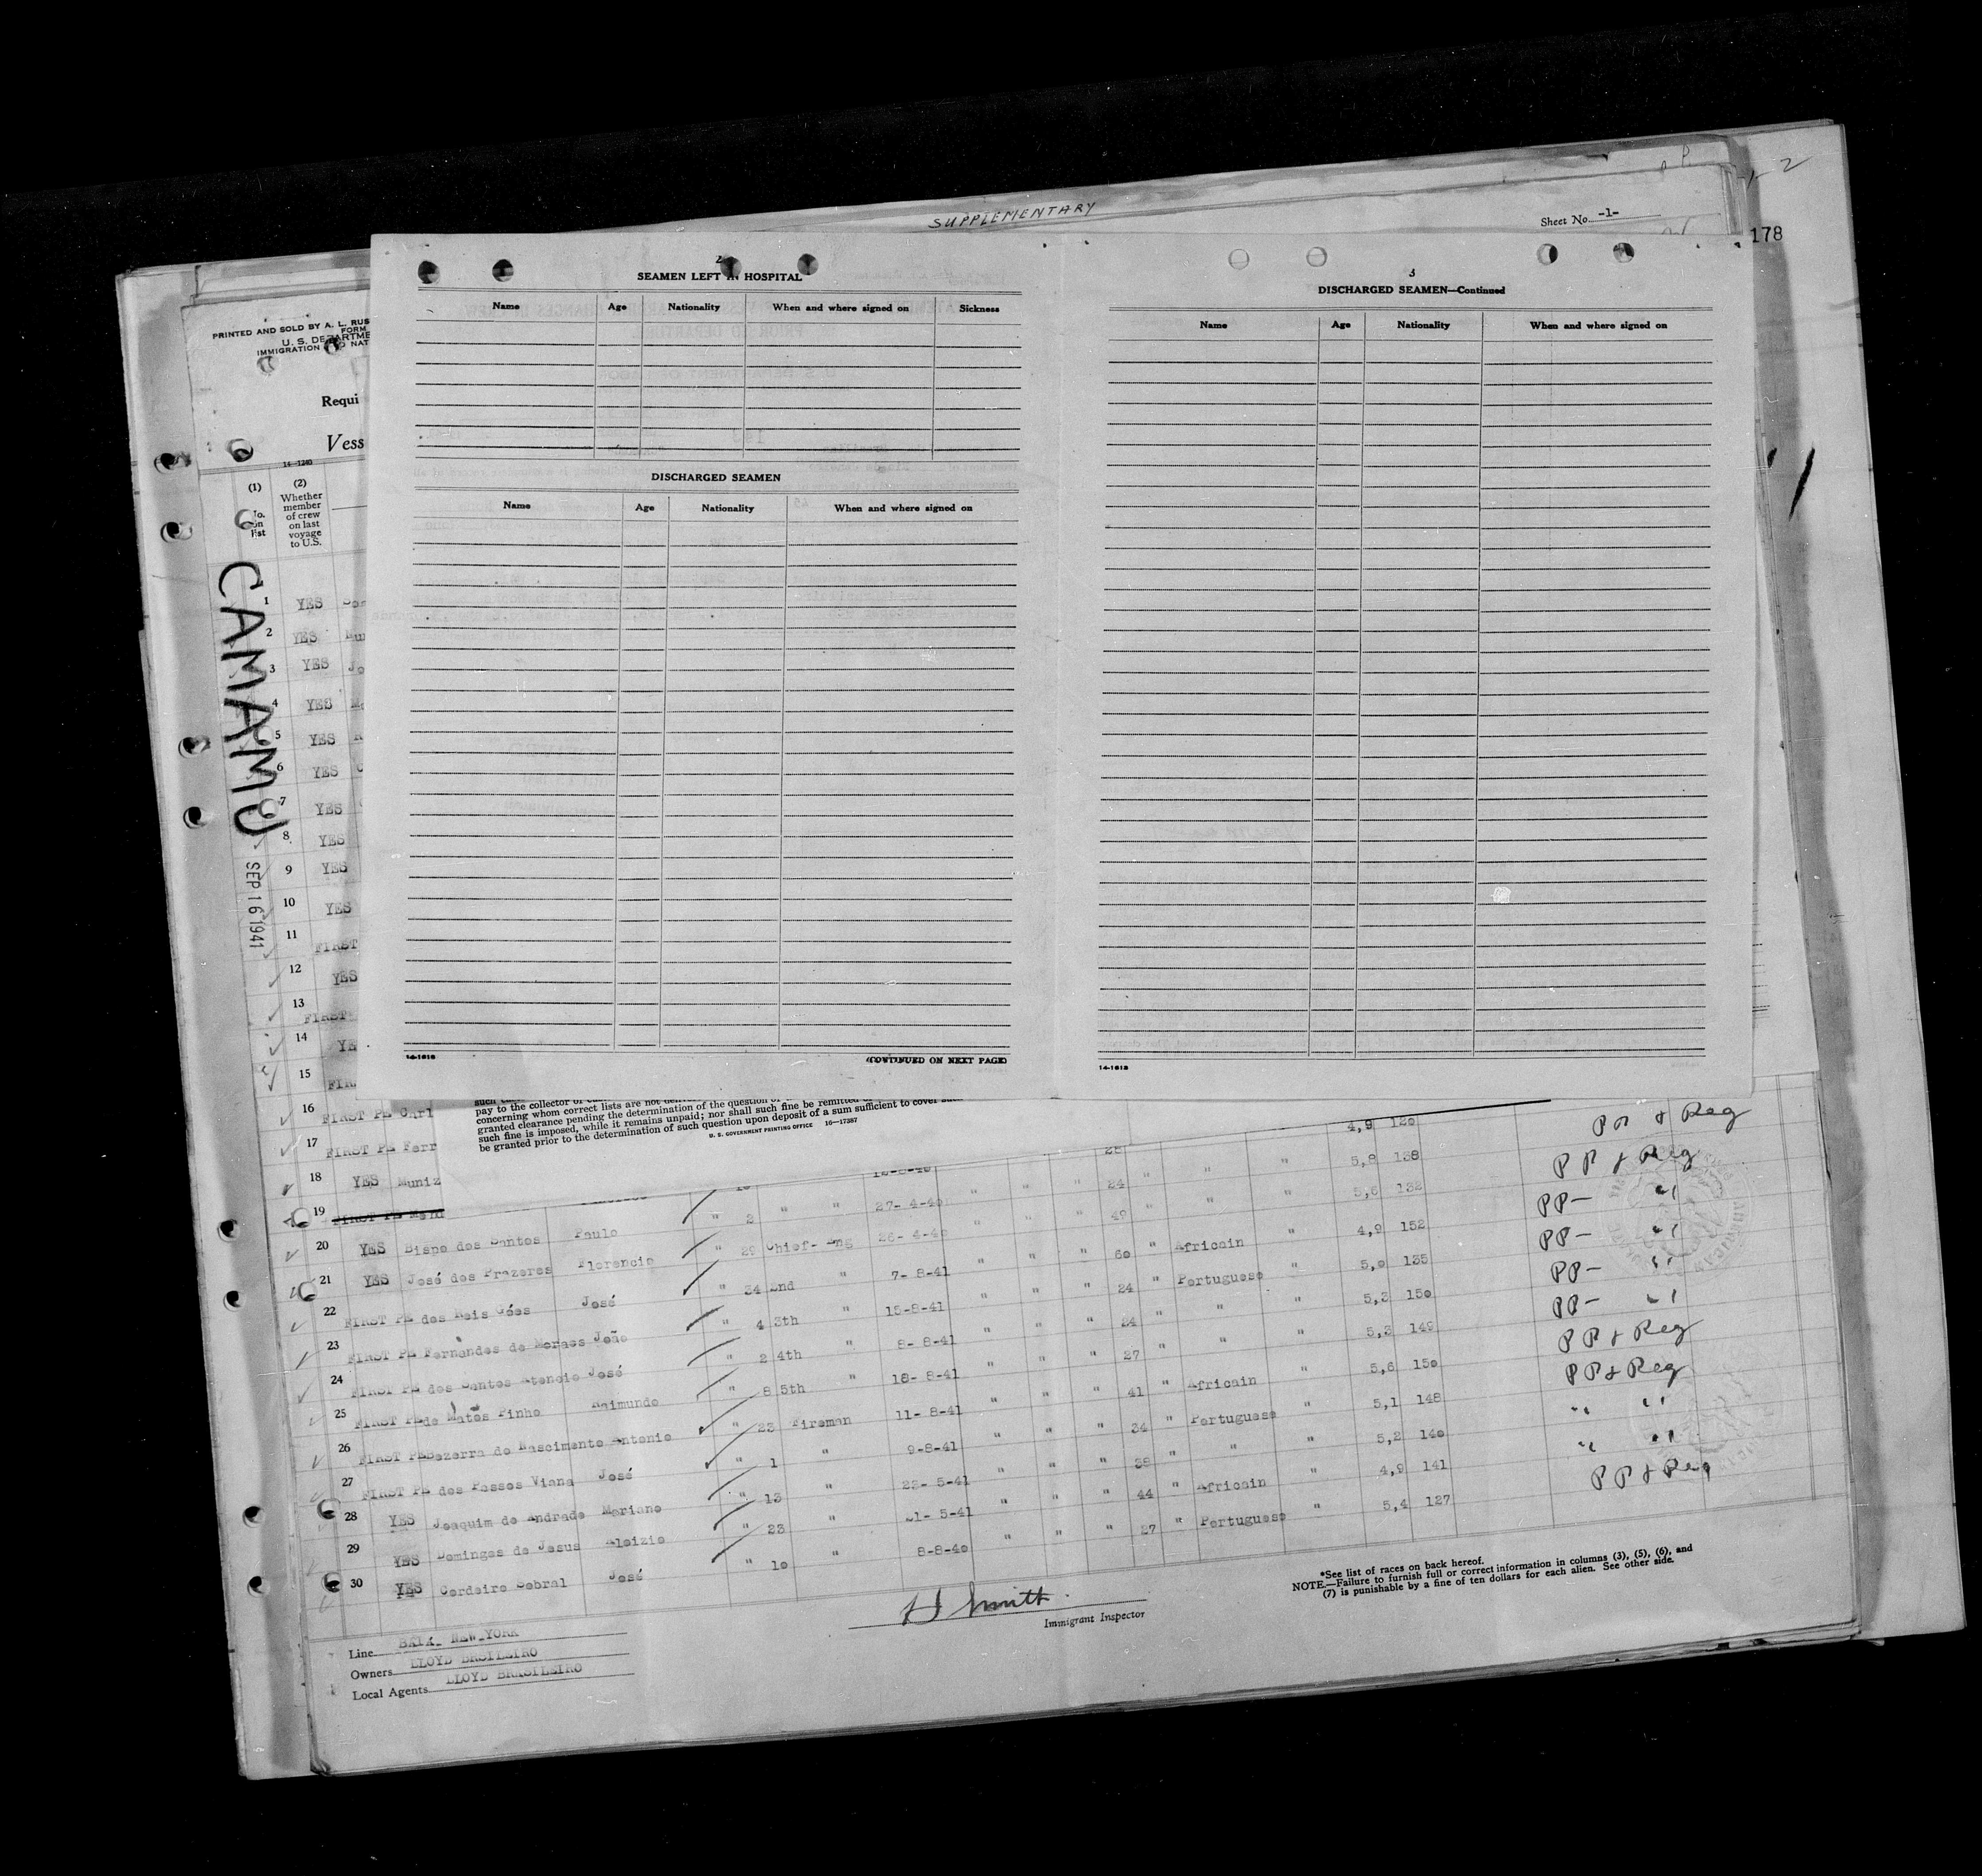 SUPPLEMENTARY
Sheet No. -1-
2
178
PRINTED AND SOLD BY A. L. RUS
FORM
U. S. DEPARTME
IMMIGRATION AND NAT
Requi
Vess
14-1240
(1) (2)
No. on list
Whether member of crew on last voyage to U.S.
CAMAMU
SEP 16 1941
2
SEAMEN LEFT IN HOSPITAL
Name Age Nationality When and where signed on Sickness
DISCHARGED SEAMEN
Name Age Nationality When and where signed on
14-1618 (CONTINUED ON NEXT PAGE)
3
DISCHARGED SEAMEN—Continued
Name Age Nationality When and where signed on
14-1618
1 YES
2 YES
3 YES
4 YES
5 YES
6 YES
7 YES
8 YES
9 YES
10 YES
11 FIRST
12 YES
13 FIRST
14 YE
15
16 FIRST PE Carl
17 FIRST PE Ferr
18 YES Muniz
19 FIRST PE
pay to the collector of
concerning whom correct lists are not
granted clearance pending the determination of the question
such fine is imposed, while it remains unpaid; nor shall such fine be remitted
be granted prior to the determination of such question upon deposit of a sum sufficient to cover
U. S. GOVERNMENT PRINTING OFFICE 16—17387
4,9 120 PP & Reg
24 " " " 5,8 138 PP & Reg
27- 4-40 " " " 49 " " " 5,6 132 PP— "
20 YES Bispo dos Santos Paulo " 29 Chief- Eng 26- 4-40 " " " 60 " Africain " 4,9 152 PP— "
21 YES José dos Prazeres Florencio " 34 2nd " 7- 8-41 " " " 24 " Portuguese " 5,0 135 PP— "
22 FIRST PE dos Reis Góes José " 4 3th " 15-8-41 " " " 24 " " " 5,3 150 PP— "
23 FIRST PE Fernandes de Moraes João " 2 4th " 8- 8-41 " " " 27 " " " 5,3 149 PP & Reg
24 FIRST PE dos Santos Atencio José " 8 5th " 18- 8-41 " " " 41 " Africain " 5,6 150 PP & Reg
25 FIRST PE de Matos Pinho Raimundo " 23 Fireman 11- 8-41 " " " 34 " Portuguese " 5,1 148 " "
26 FIRST PE Bezerra do Nascimento Antonio " 1 " 9-8-41 " " " 38 " " " 5,2 140 " "
27 FIRST PE dos Passos Viana José " 13 " 22- 5-41 " " " 44 " Africain " 4,9 141 PP & Reg
28 YES Joaquim de Andrade Mariano " 23 " 21- 5-41 " " " 27 " Portuguese " 5,4 127
29 YES Domingas de Jesus Aloizio " 10 " 8-8-40
30 YES Cordeiro Sobral José
H Smith
Immigrant Inspector
*See list of races on back hereof.
NOTE.—Failure to furnish full or correct information in columns (3), (5), (6), and
(7) is punishable by a fine of ten dollars for each alien. See other side.
Line NEW YORK
Owners LLOYD BRSILEIRO
Local Agents LLOYD BRASILEIRO